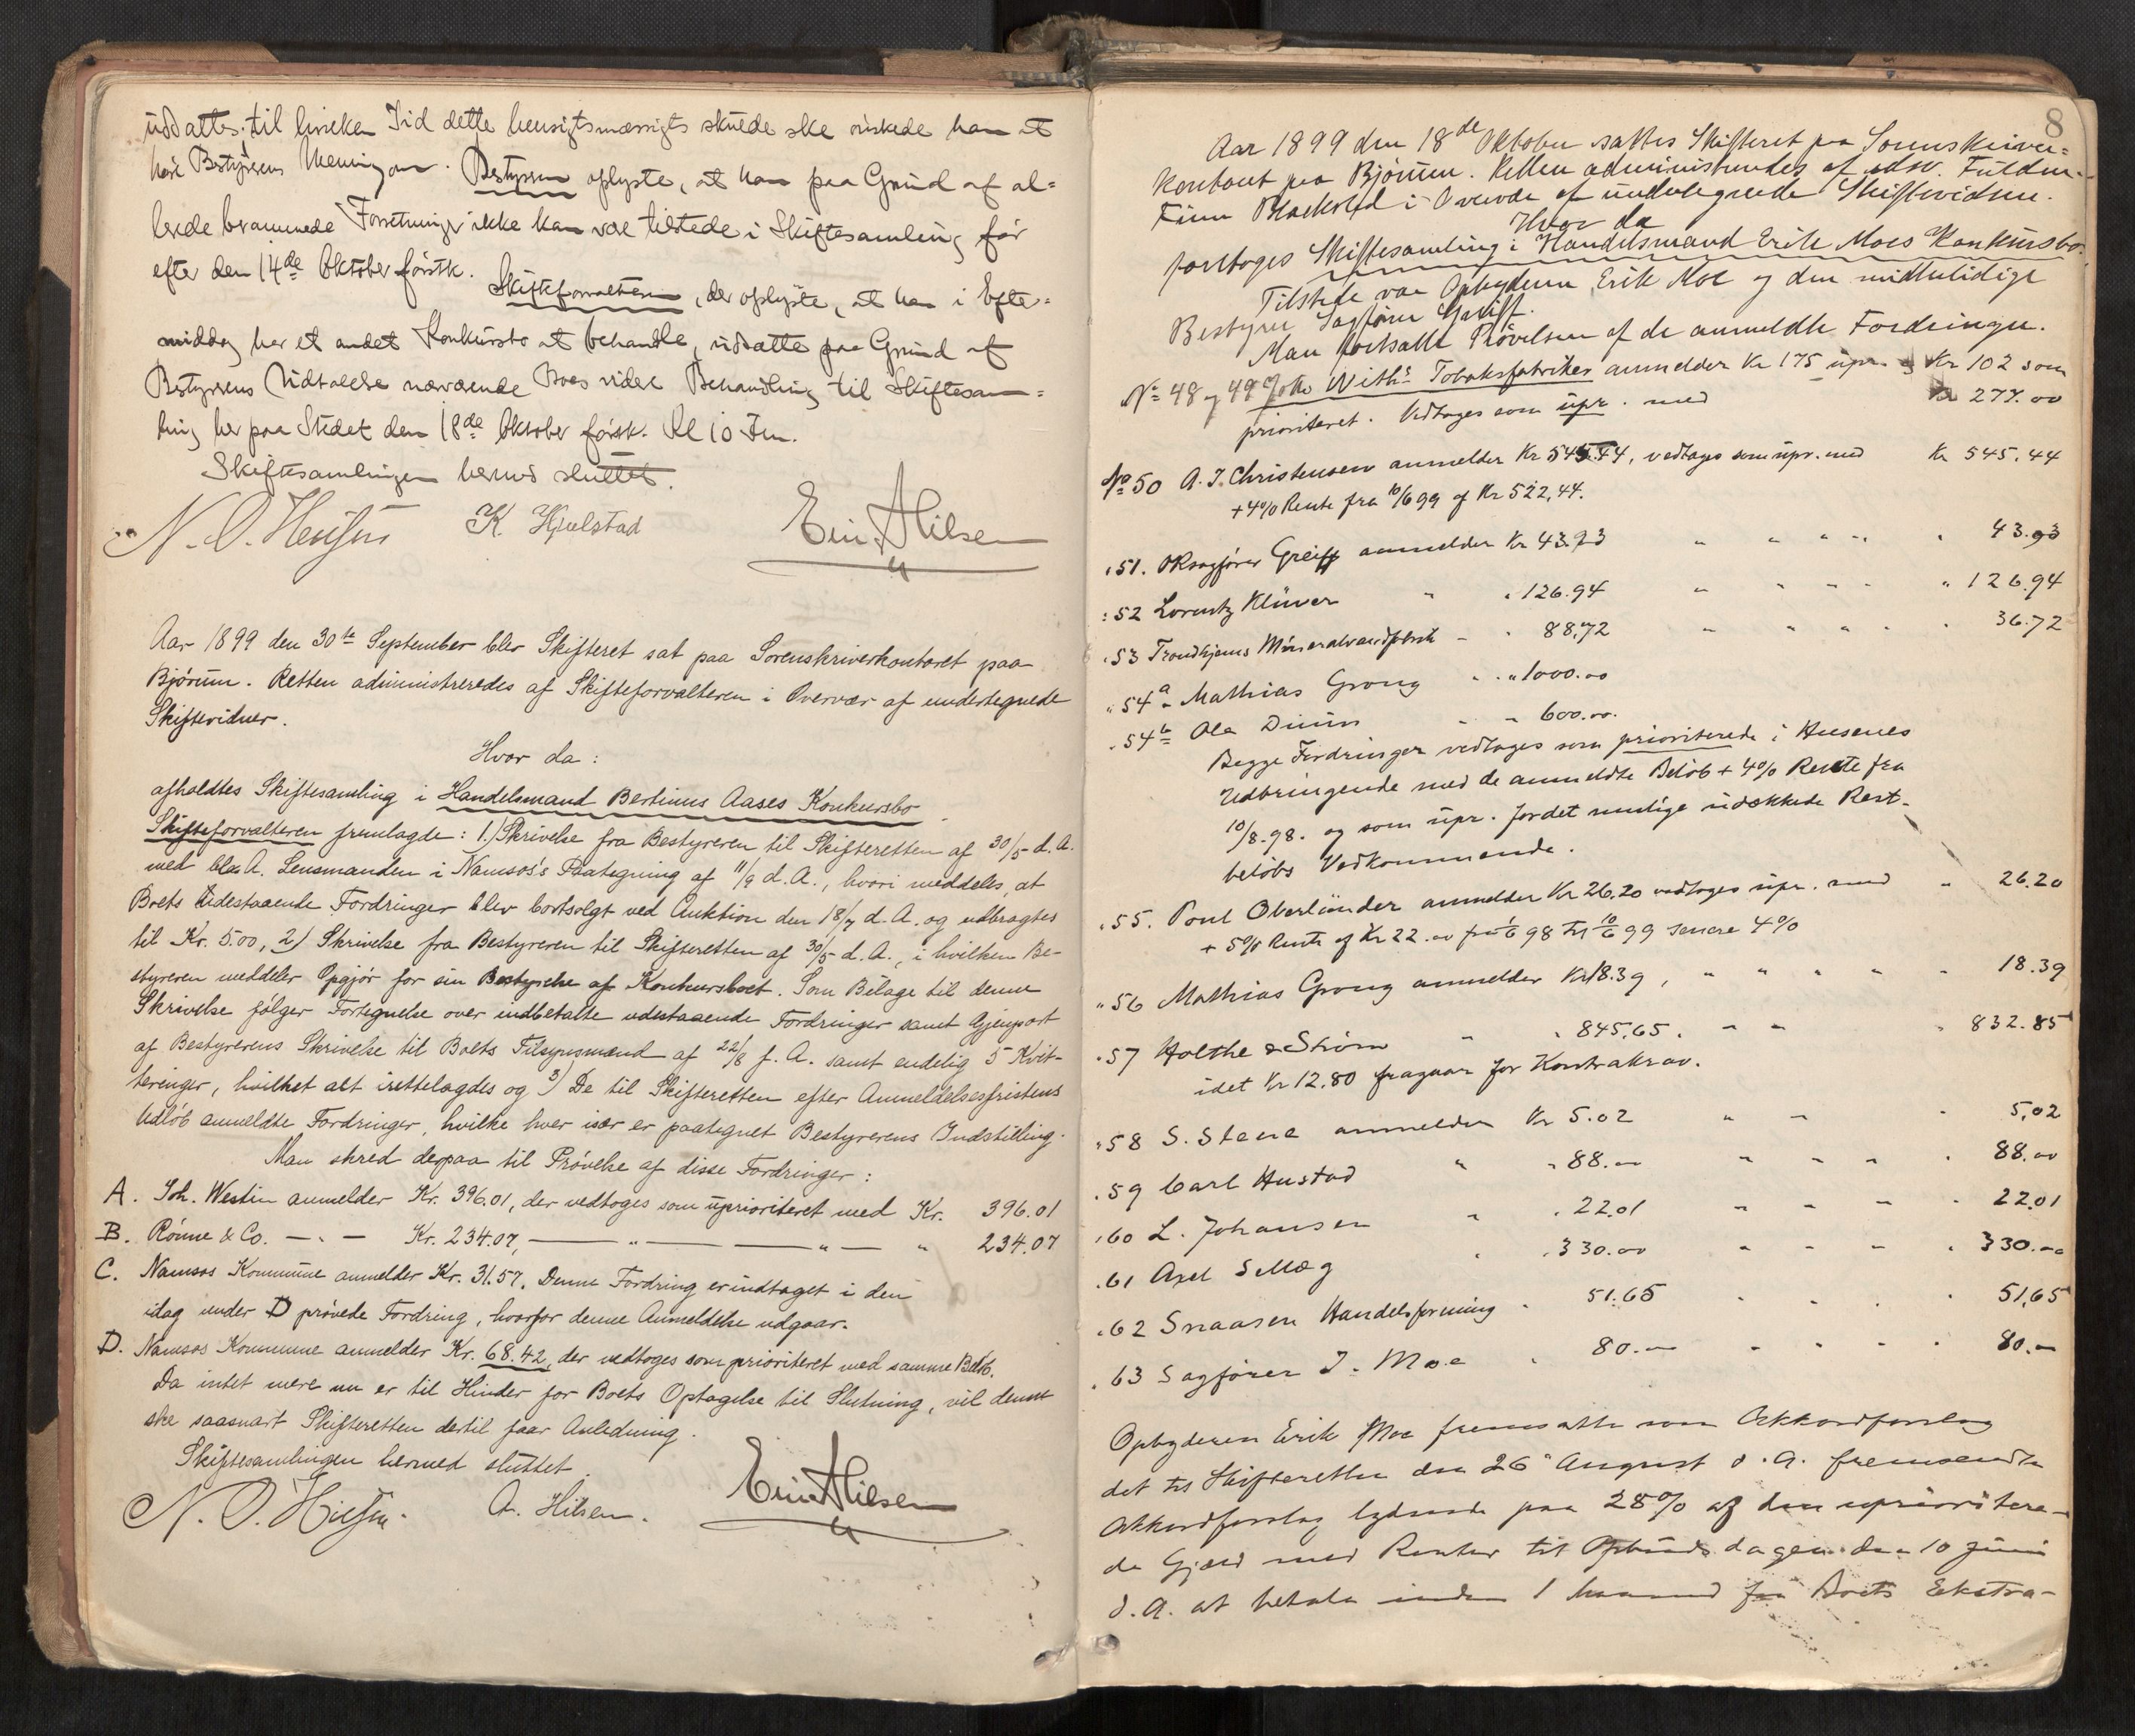 udsattes, til hvilken Tid dette hensigtsmæssigts skulde ske ønskede han at
høre Bestyrerens Mening om. Bestyreren oplyste, at han paa Grund af al=
lerede berammede Forretninger ikke kan være tilstede i Skiftesamling før
efter den 14de Oktober førstk. Skifteforvalteren, der oplyste, at han i Efter=
middag har et andet Konkursbo at behandle, udsatte paa Grund af
Bestyrerens Udtalelse nærværende Boes videre Behandling til Skiftesam=
ling her paa Stedet den 18de Oktober førstk. Kl 10 Fm.
Skiftesamlingen hermed sluttet.
N. O. K. Hjulstad
Aar 1899 den 30te September blev Skifteret sat paa Sorenskriverkontoret paa
Bjørum. Retten administreredes af Skifteforvalteren i Overvær af undertegnede
Skiftevidner.
Hvor da:
afholdtes Skiftesamling i Handelsmand Bertinus Aases Konkursbo.
Skifteforvalteren fremlagde: 1.) Skrivelse fra Bestyreren til Skifteretten af 30/5 d. A.
med bl. a. Lensmanden i Namsos's Paategning af 11/9 d. A., hvori meddeles, at
Boets udestaaende Fordringer blev bortsolgt ved Auktion den 18/7 d. A. og udbragtes
til Kr. 5.00, 2) Skrivelse fra Bestyreren til Skifteretten af 30/5 d. A., i hvilken Be-
styreren meddeler Opgjør for sin Bestyrelse af Konkursboet. Som Bilage til denne
Skrivelse følger Fortegnelse over indbetalte udestaaende Fordringer samt Gjenpart
af Bestyrerens Skrivelse til Boets Tilsynsmænd af 22/8 f. A. samt endelig 5 Kvit-
teringer, hvilket alt irettelagdes og 3) De til Skifteretten efter Anmeldelsesfristens
Udløb anmeldte Fordringer, hvilke hver især er paategnet Bestyrerens Indstilling.
Man skred derpaa til Prøvelse af disse Fordringer:
A. Joh. Westin anmelder Kr. 396.01, der vedtoges som uprioriteret med Kr. 396.01
B. Rönne & Co. — " — Kr. 234.07, — " — " — " 234.07
C. Namsos Kommune anmelder Kr. 31.57. Denne Fordring er indtaget i den
idag under D prøvede Fordring, hvorfor denne Anmeldelse udgaar.
D. Namsos Kommune anmelder Kr. 68.42, der vedtoges som prioriteret med samme Beløb.
Da intet mere nu er til Hinder for Boets Optagelse til Slutning, vil denne
ske saasnart Skifteretten dertil faar Anledning.
Skiftesamlingen hermed sluttet.
N. O. A. Hilsen.
8
Aar 1899 den 18de Oktober sattes Skifteret paa Sorenskriver=
kontoret paa Bjørum. Retten administreredes af edsv. Fuldm.
Finn i Overvær af undertegnede Skiftevidner.
Hvor da
foretoges Skiftesamling i Handelsmand Erik Moes Konkursbo.
Tilstede var Opbyderen Erik Moe og den midlertidige
Bestyrer Sagfører Greiff.
Man fortsatte Prøvelsen af de anmeldte Fordringer.
No 48 og 49 Withs Tobaksfabriker anmelder Kr 175 upr. og Kr 102 som
prioriteret. Vedtoges som upr. med Kr 277.00
No 50 A. J. Christensen anmelder Kr 545.44, vedtages som upr. med Kr 545.44
+ 4% Rente fra 10/6 99 af Kr 522,44.
" 51. OKsagfører Greiff anmelder Kr 43.93 " " " " " 43.93
" 52 Lorentz Klüwer " " 126.94 " " " " " 126.94
" 53 Trondhjems Mineralvandfabrik " " 88,72 " " " " " 36.72
" 54a Mathias Grong " " 1000.00
" 54b Ole Duun " " 600.00.
Begge Fordringer vedtages som prioriterede i Husenes
Udbringende med de anmeldte Beløb + 4% Rente fra
10/8.98. og som upr. for det mulige udækkede Rest-
beløbs Vedkommende.
" 55. Poul Oberländer anmelder Kr 26,20 vedtoges upr. med " 26.20
+ 5% Rente af Kr 22.00 fra 1/6 98 til 10/6 99 senere 4%
" 56 Mathias Grong anmelder Kr 18.39, " " " " " 18.39
" 57 Holthe & Strøm " " 845,65. " " " 832.85
idet Kr 12.80 fragaar for Kontrakrav.
" 58 S. Stene anmelder Kr 5.02 " " " 5,02
" 59 Carl Hustad " " 88.00 " " " " 88.00
" 60 L. Johansen " " 22.01 " " " " 22.01
" 61 Axel Sellæg " " 330.00 " " " " 330.00
" 62 Snaasen Handelsforening " 51.65 " " " " 51,65
" 63 Sagfører J. Moe " 80.— " " " " 80.—
Opbyderen Erik Moe fremsatte som Akkordforslag
det til Skifteretten den 26 August d. A. fremsendte
Akkordforslag lydende paa 25% af den uprioritere-
de Gjæld med Renter til Opbudsdagen den 10 Juni
d. A. at betale inden 1 Maaned fra Boets Ekstra-